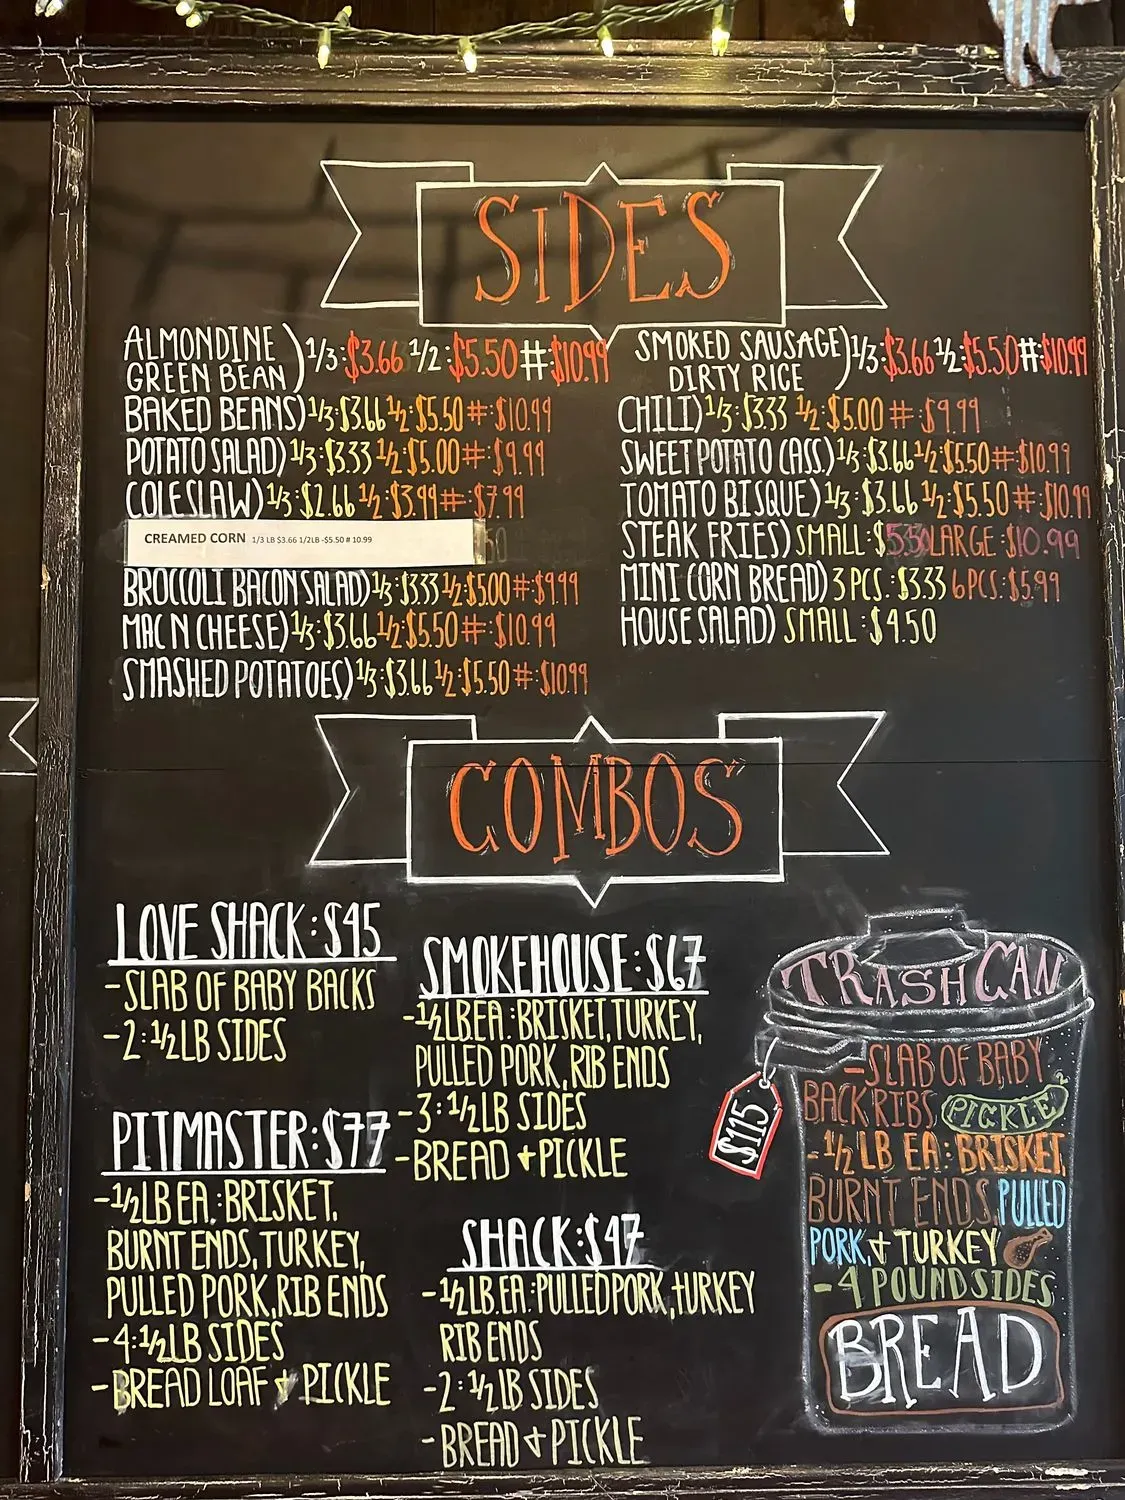 SIDES
ALMONDINE
GREEN BEAN ) 1/3:$3.66 1/2:$5.50 #:$10.99
BAKED BEANS) 1/3:$3.66 1/2:$5.50 #:$10.99
POTATO SALAD) 1/3:$3.33 1/2:$5.00 #:$9.99
COLESLAW) 1/3:$2.66 1/2:$3.99 #:$7.99
CREAMED CORN 1/3 LB $3.66 1/2LB -$5.50 # 10.99
BROCCOLI BACON SALAD) 1/3:$3.33 1/2:$5.00 #:$9.99
MAC N CHEESE) 1/3:$3.66 1/2:$5.50 #:$10.99
SMASHED POTATOES) 1/3:$3.66 1/2:$5.50 #:$10.99
SMOKED SAUSAGE
DIRTY RICE ) 1/3:$3.66 1/2:$5.50 #:$10.99
CHILI) 1/3:$3.33 1/2:$5.00 #:$9.99
SWEET POTATO CASS.) 1/3:$3.66 1/2:$5.50 #:$10.99
TOMATO BISQUE) 1/3:$3.66 1/2:$5.50 #:$10.99
STEAK FRIES) SMALL:$5.50 LARGE:$10.99
MINI CORN BREAD) 3 PCS.:$3.33 6 PCS.:$5.99
HOUSE SALAD) SMALL:$4.50
COMBOS
LOVE SHACK:$45
-SLAB OF BABY BACKS
-2:1/2LB SIDES
PITMASTER:$77
-1/2LB EA.:BRISKET,
BURNT ENDS, TURKEY,
PULLED PORK, RIB ENDS
-4:1/2LB SIDES
-BREAD LOAF & PICKLE
SMOKEHOUSE:$67
-1/2LB.EA.:BRISKET, TURKEY,
PULLED PORK, RIB ENDS
-3:1/2LB SIDES
-BREAD + PICKLE
SHACK:$47
-1/2LB.EA.:PULLED PORK, TURKEY
RIB ENDS
-2:1/2LB SIDES
-BREAD & PICKLE
TRASH CAN
$115
-SLAB OF BABY
BACK RIBS, PICKLE
-1/2 LB EA: BRISKET,
BURNT ENDS, PULLED
PORK, & TURKEY
-4 POUND SIDES
BREAD